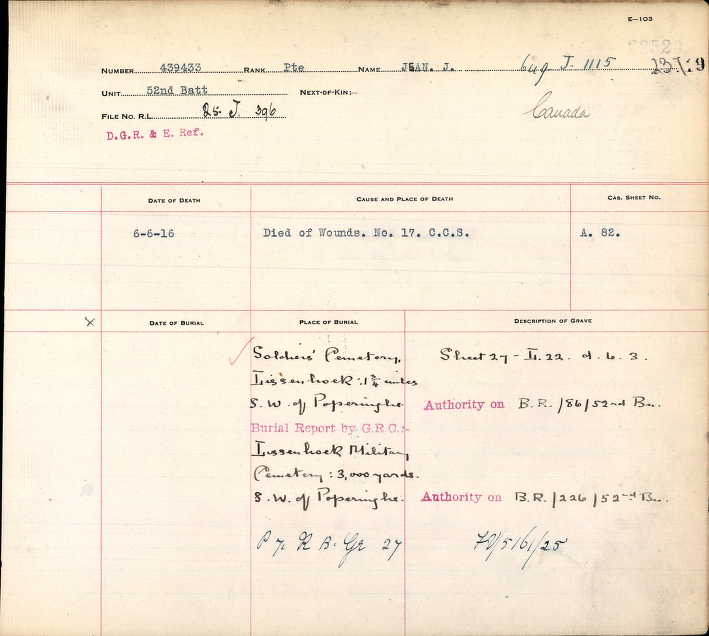 E-103
NUMBER 439433 RANK Pte NAME JEAN. J. 649 J. 1115
UNIT 52nd Batt NEXT-OF-KIN:-
Canada
FILE NO. R.L. 25. J. 396
D.G.R. & E. Ref.
DATE OF DEATH CAUSE AND PLACE OF DEATH CAS. SHEET NO.
6-6-16 Died of Wounds. No. 17. C.C.S. A. 82.
X DATE OF BURIAL PLACE OF BURIAL DESCRIPTION OF GRAVE
Soldiers' Cemetery, Sheet 27 - L. 22. d. 6. 3.
Lissenhoek: 1¾ miles
S.W. of Poperinghe. Authority on B.R./86/52nd Bn.
Burial Report by G.R.C.:-
Lissenhoek Military
Cemetery: 3,000 yards.
S.W. of Poperinghe. Authority on B.R./226/52nd Bn.
R B. Gr 27